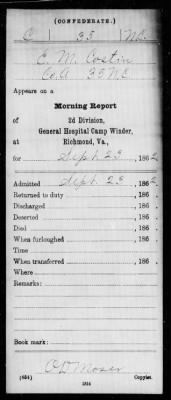 (CONFEDERATE.)
C | 35 | N.C.
E. M. Costin
Co. A 35 N.C.
Appears on a
Morning Report
of 2d Division,
General Hospital Camp Winder,
at Richmond, Va.,
for Sept. 23, 1862
Admitted Sept. 23, 1862
Returned to duty , 186
Discharged , 186
Deserted , 186
Died , 186
When furloughed , 186
Time
When transferred , 186
Where
Remarks:
Book mark:
O D Moser
(654) Copyist.